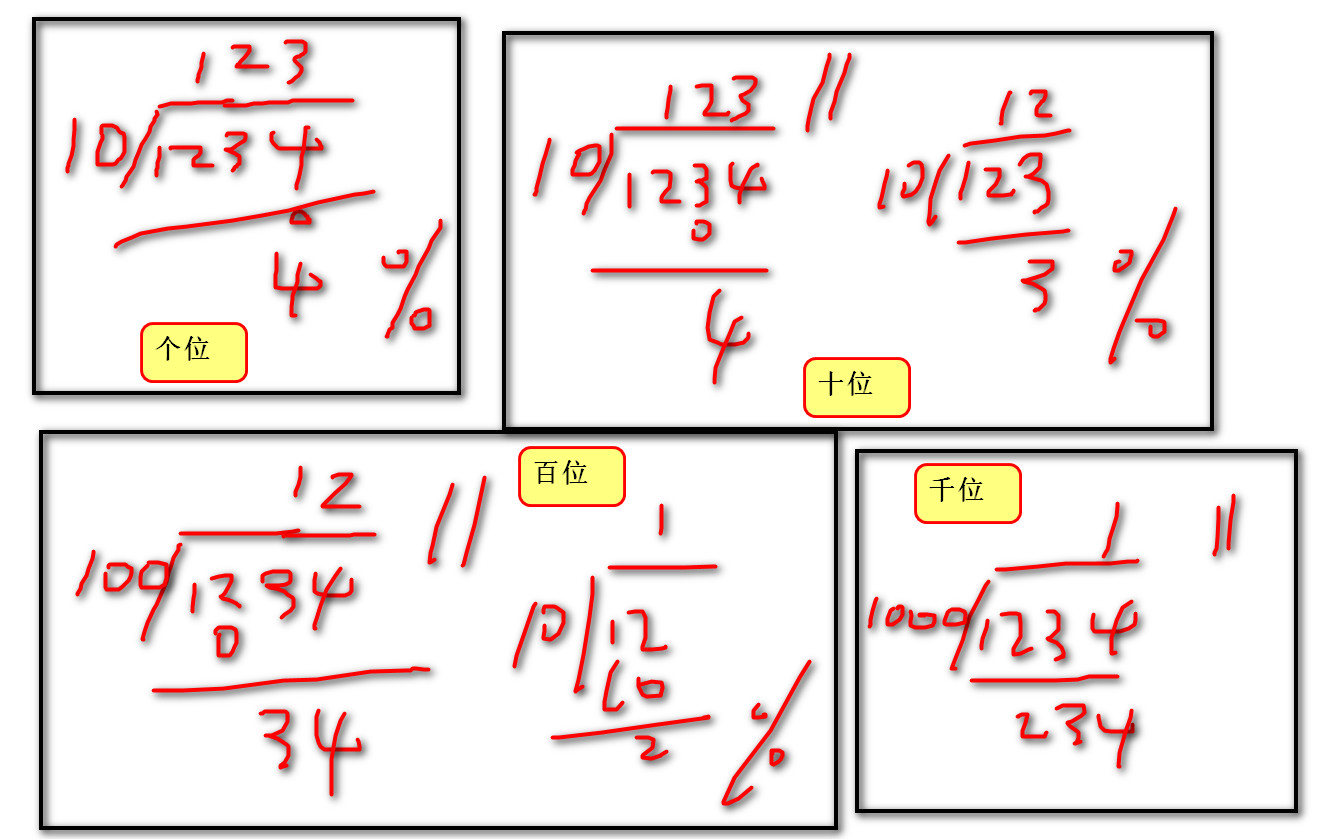 123
10 1234
0
4 %
个位
123 //
10 1234
0
4
12
10 123
3 %
十位
12 //
100 1234
0
34
百位
1
10 12
10
2 %
千位
1 //
1000 1234
234